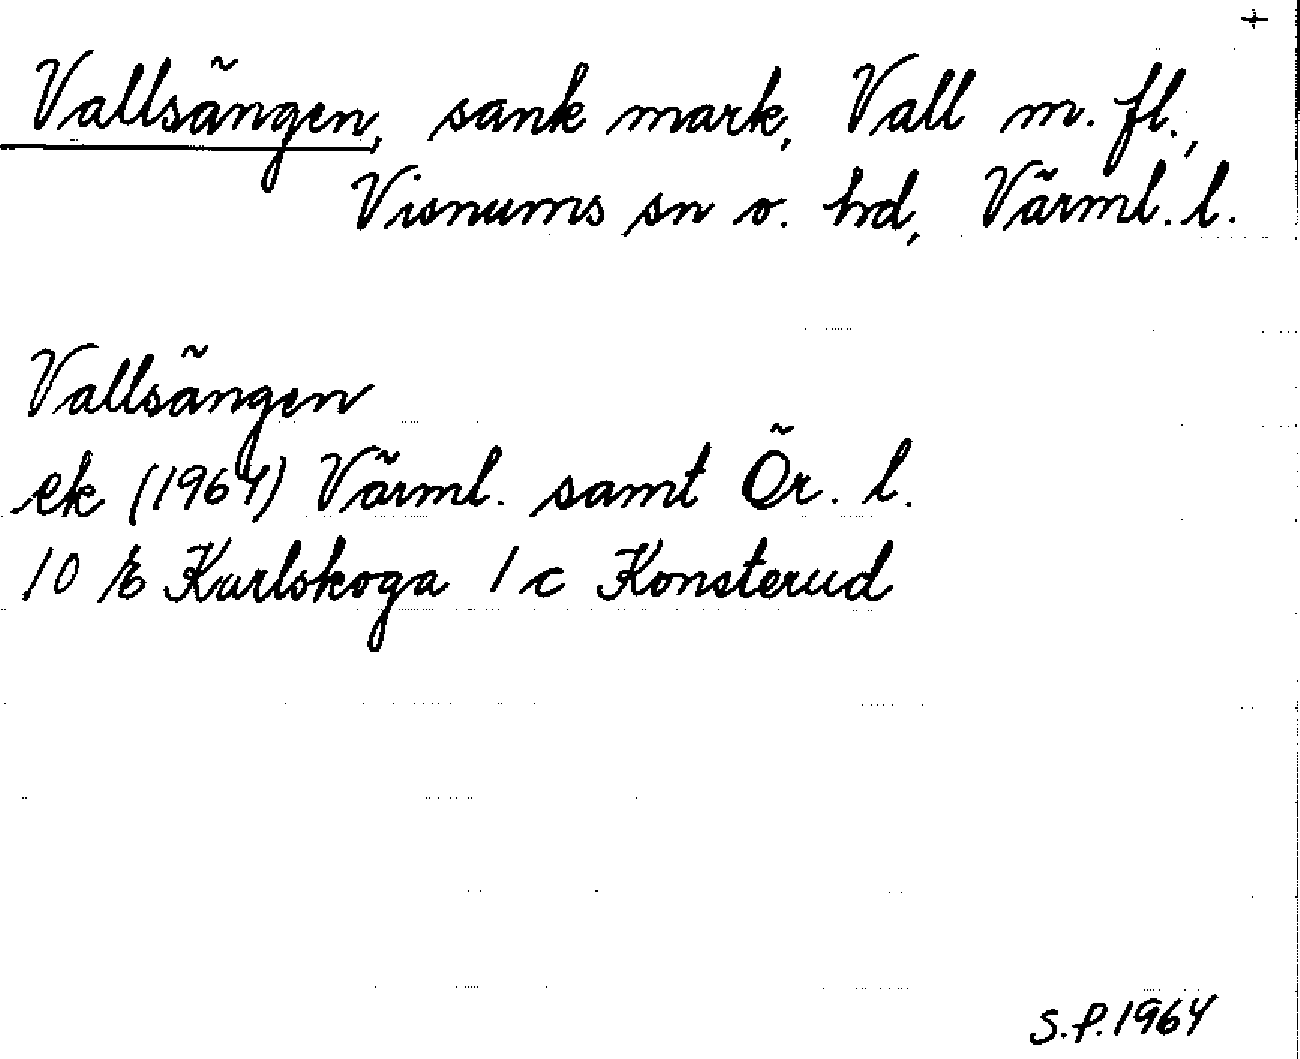 +
Vallsängen, sank mark, Vall m. fl.,
Visnums sn o. hd, Värml. l.
Vallsängen
ek (1964) Värml. samt Ör. l.
10 E Karlskoga 1 c Konsterud
S.P. 1964